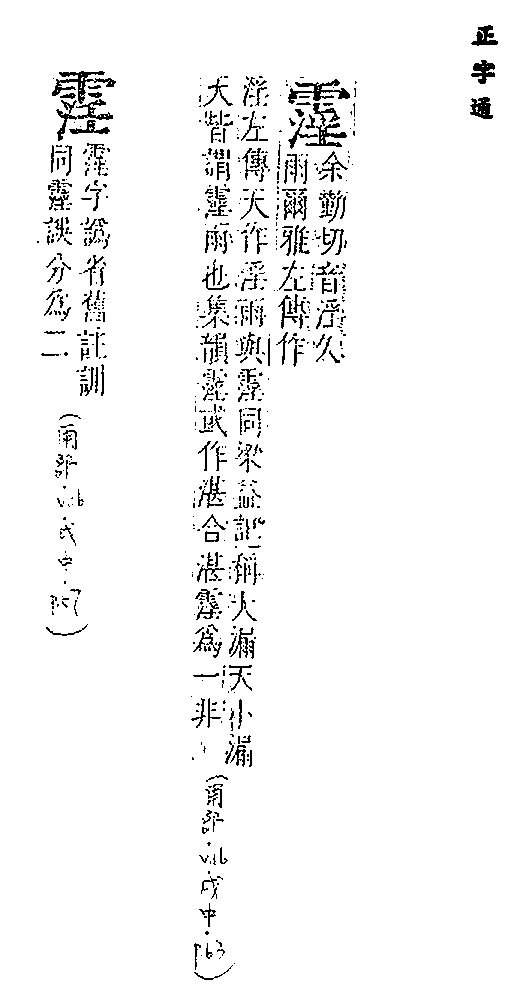 正字通
霪
余勤切音淫久
雨爾雅左傳作
淫左傳天作淫雨與霪同梁益記稱大漏天小漏
天皆謂霪雨也集韻霪或作湛合湛霪為一非
(雨部·V.16戌中·P.63)
霪字譌省舊註訓
同霪誤分為二
(雨部·V.16·戌中·P.57)